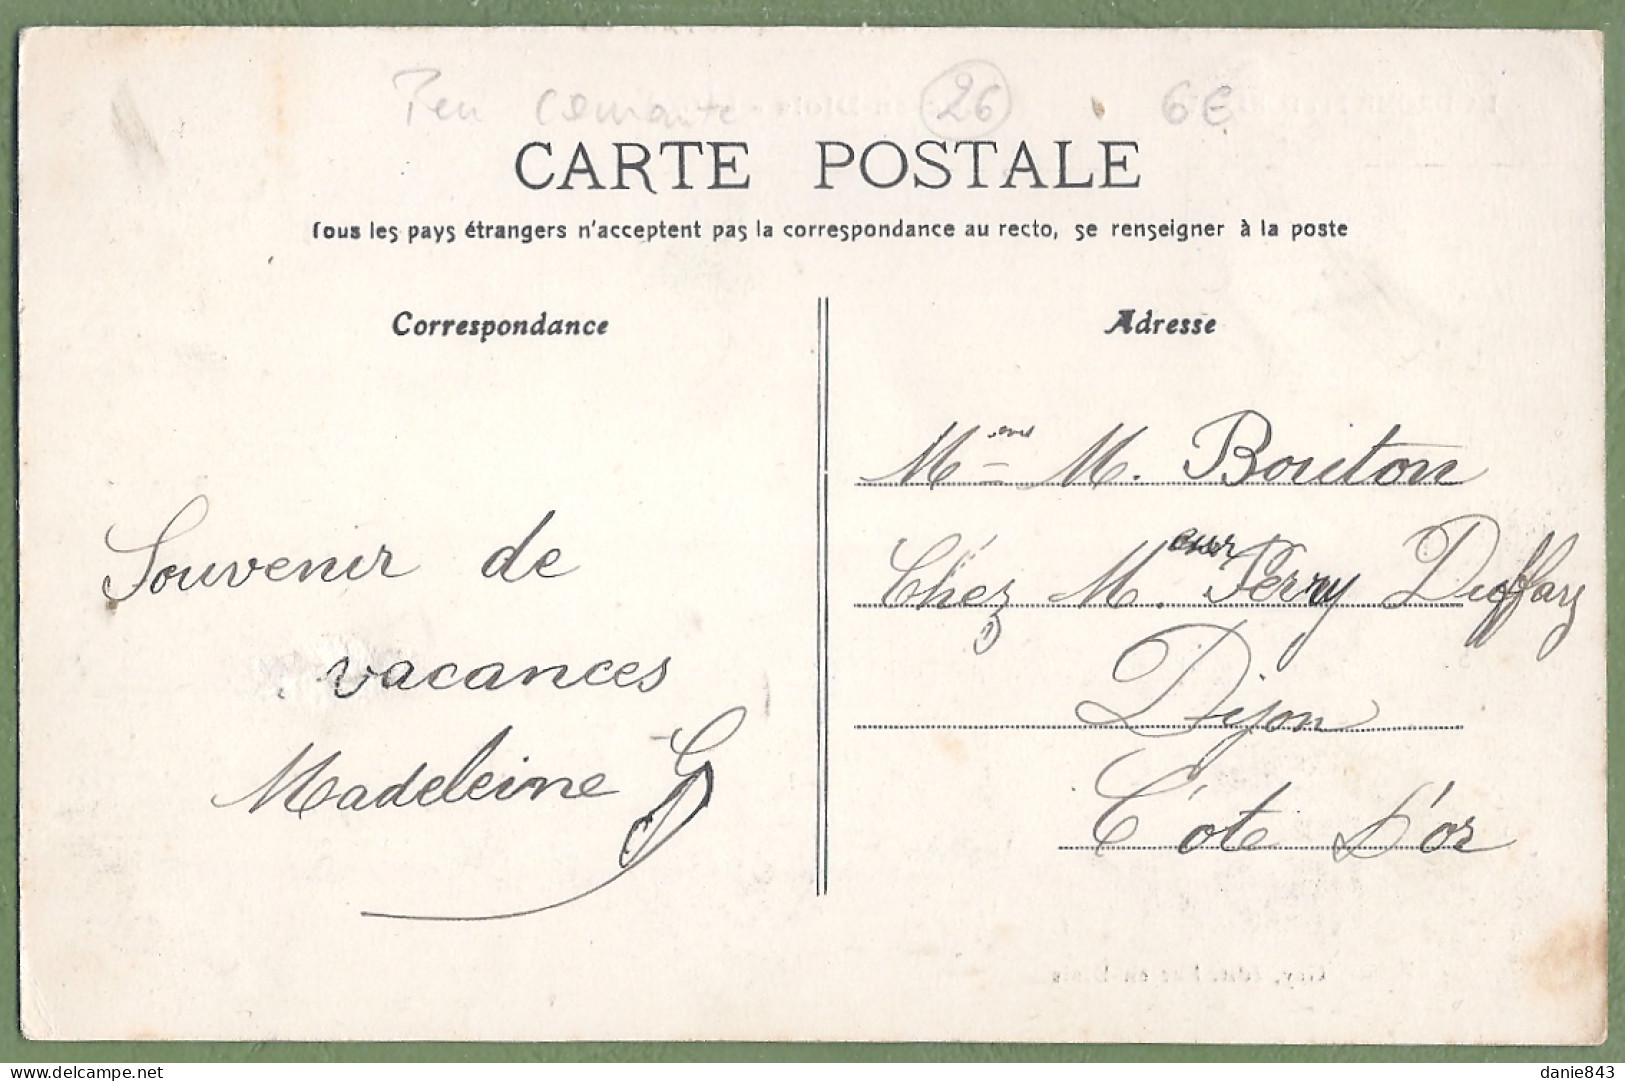 Peu courante 26 6€
CARTE POSTALE
Tous les pays étrangers n'acceptent pas la correspondance au recto, se renseigner à la poste
Correspondance
Souvenir de
vacances
Madeleine G
Adresse
M. Bouiton
Chez M. Perry Duffarg
Dijon
Côte D'or
delcampe.net
danie843